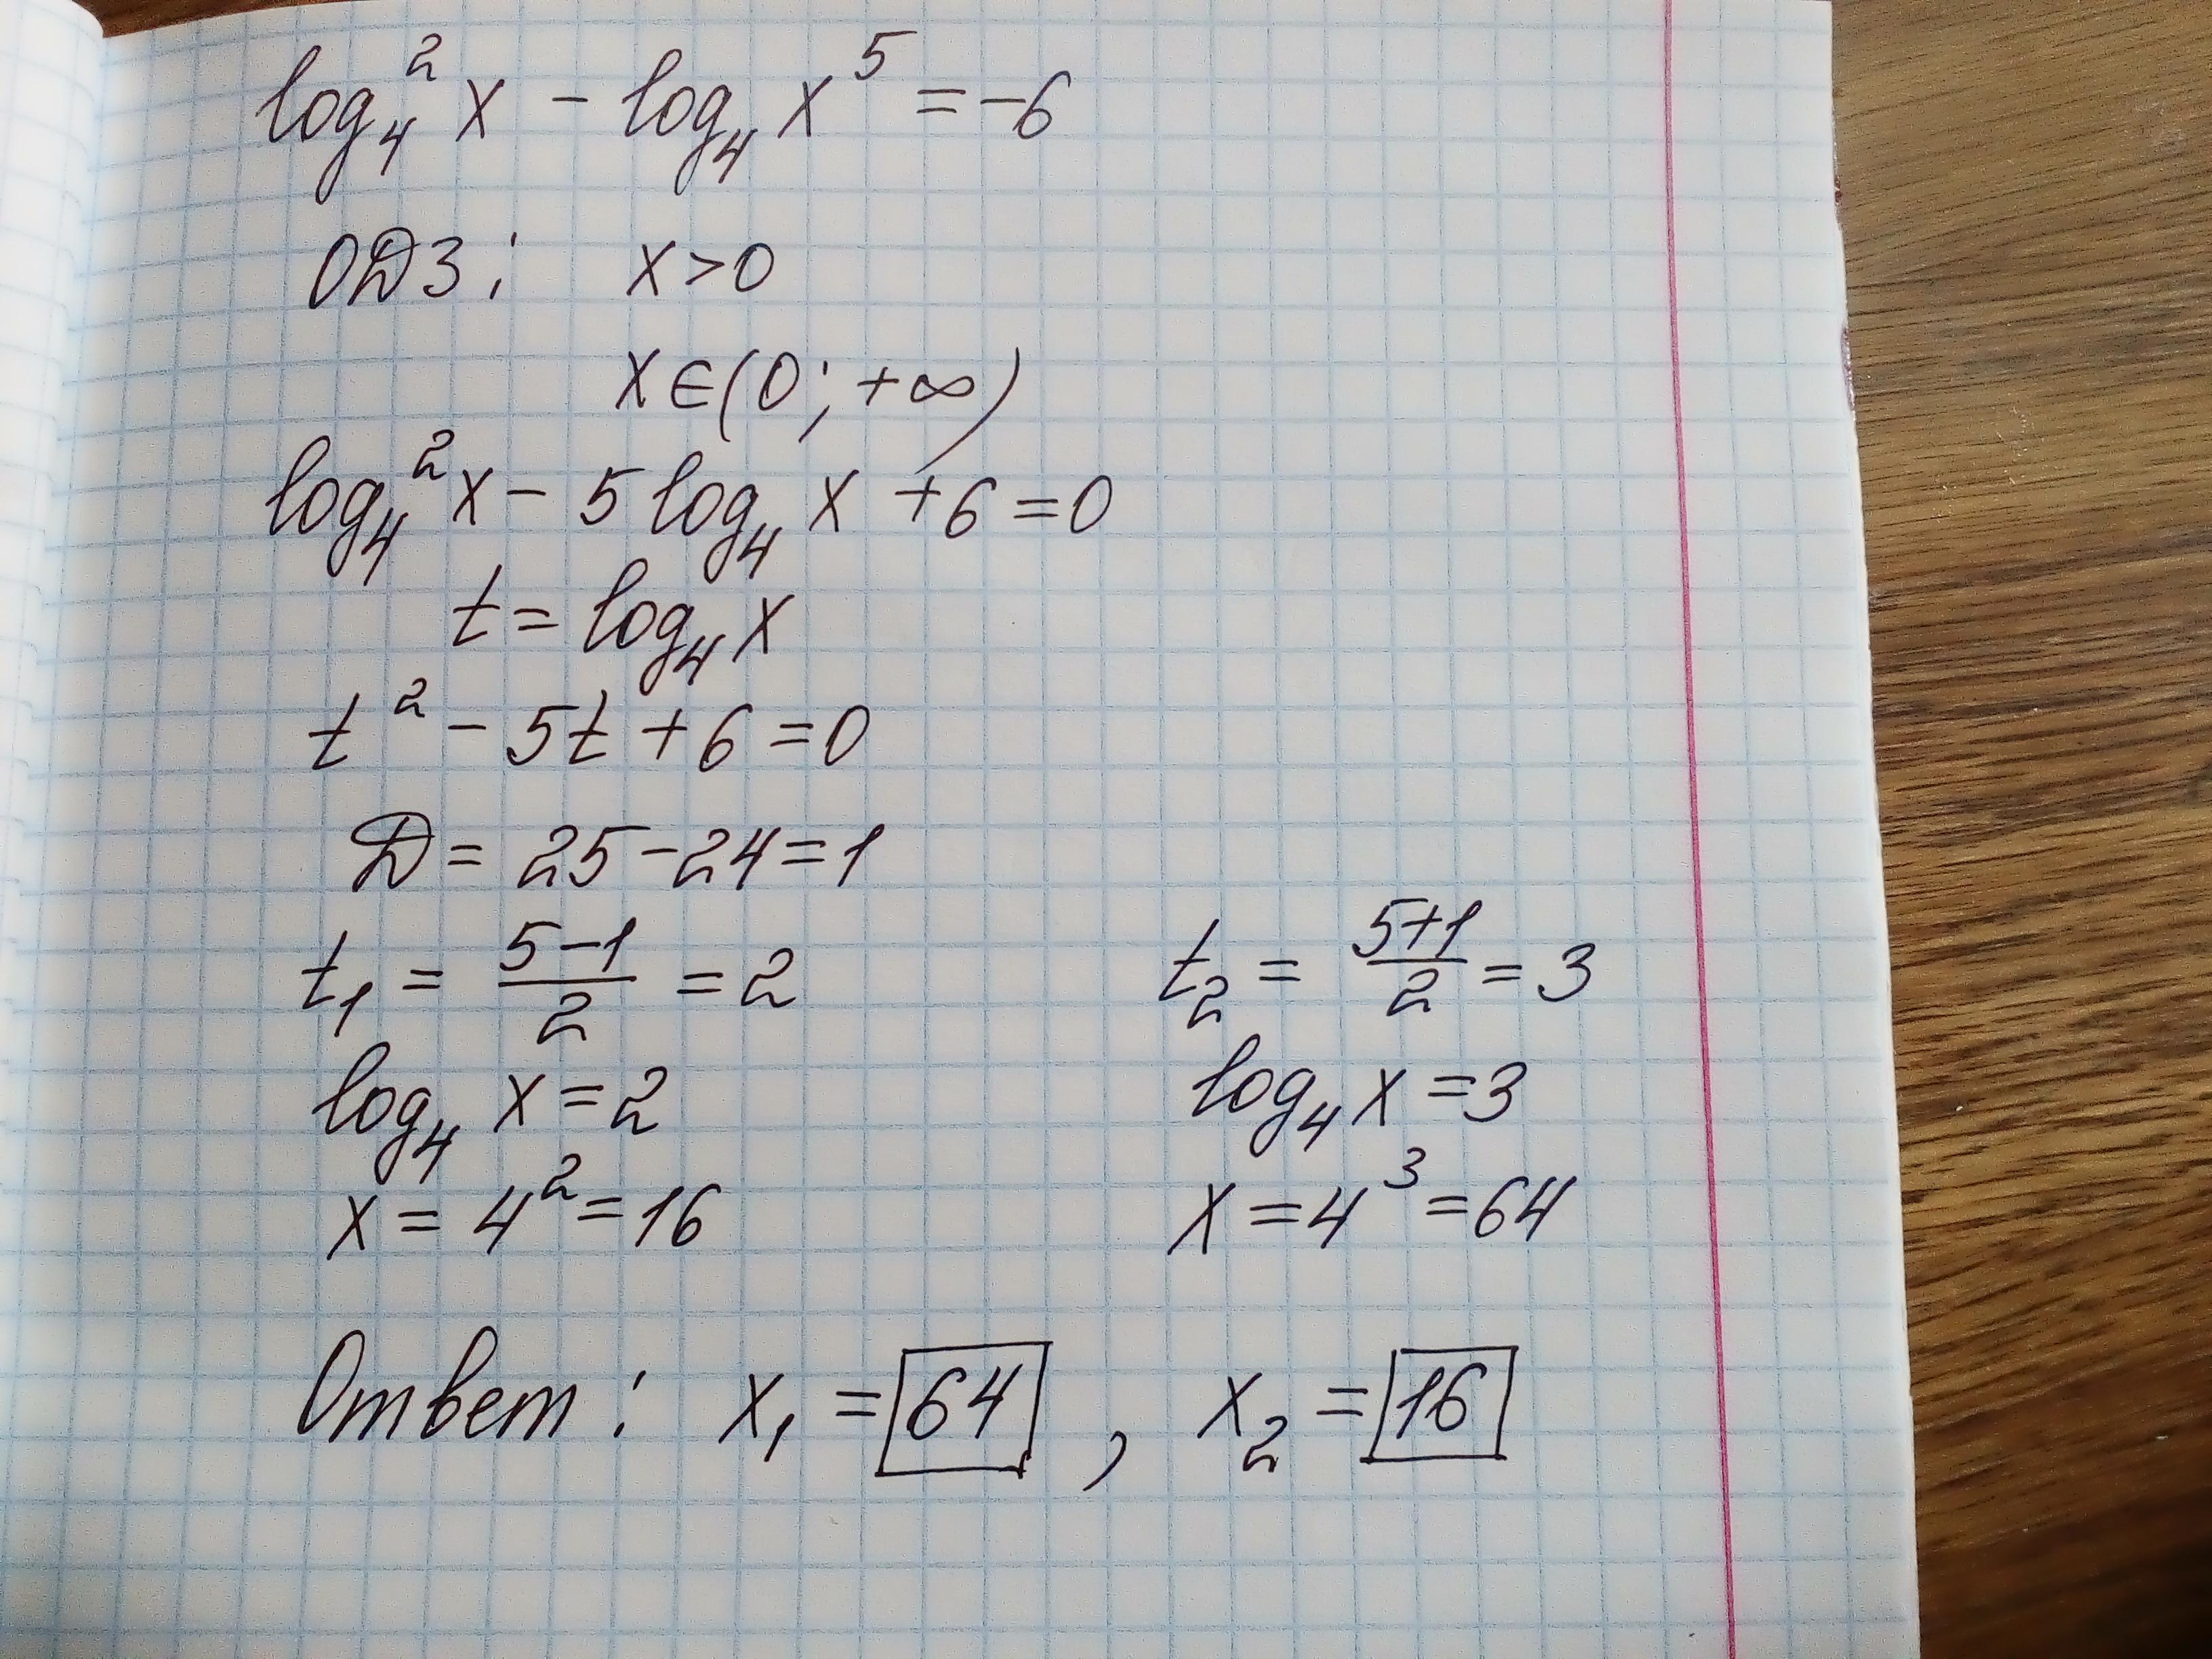 log₄²x - log₄x⁵ = -6
ОДЗ: x>0
x∈(0; +∞)
log₄²x - 5log₄x + 6 = 0
t = log₄x
t² - 5t + 6 = 0
D = 25-24=1
t₁ = (5-1)/2 = 2    t₂ = (5+1)/2 = 3
log₄ x = 2    log₄ x = 3
x = 4² = 16    x = 4³ = 64
Ответ: x₁ = 64, x₂ = 16